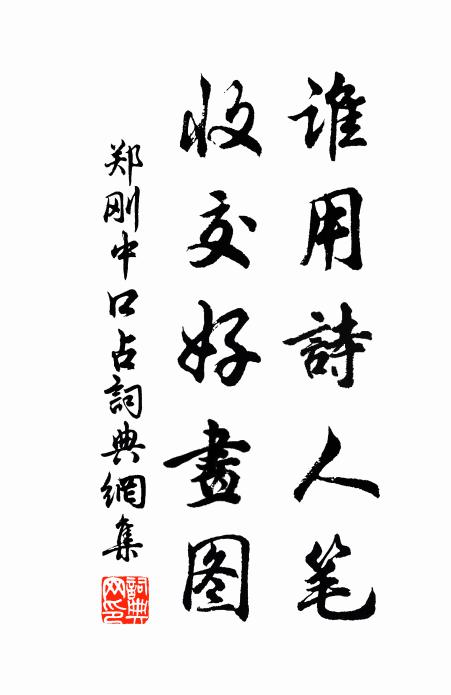 谁用詩人笔
收交好畫图
郑刚中口占詞典網集
詞典网印